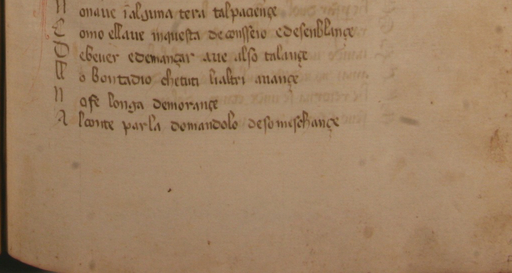 N onaue i alguna tera tal paciençe
C omo ella ue inquesta de conseio e de senblançe
D e beuer e de mançar aue also talançe
M o bontadio che tuti li altri auançe
N o fe longa demorançe
A l conte parla domandolo de so mischançe